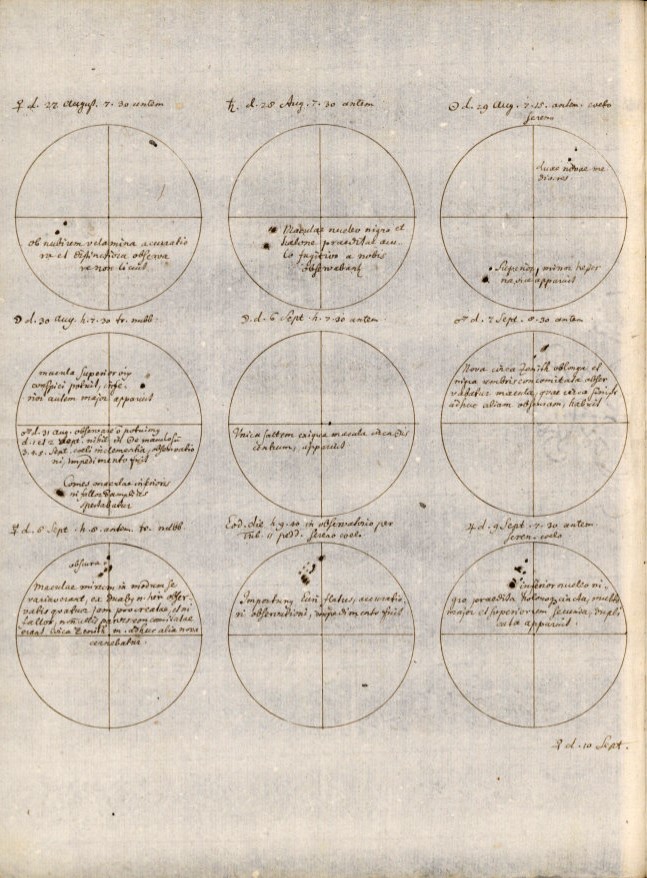 ♀ d. 27 August. 7. 30 antem
ob nubium velamina accuratio
re et distinctiora observa
re non licuit.
♄. d. 28 Aug. 7. 30 antem
Maculae nucleo nigro et
halone praeditae acu
lo fugitivo a nobis
observabant
☉ d. 29 Aug. 7. 15. antem. coelo
sereno
duae novae me
diocres.
Superior, minor hester
na, ita apparuit
☽ d. 30 Aug. h. 7. 30 tr. nubb.
macula superior vix
conspici potuit, infe
rior autem major apparuit
♂ d. 31 aug. observare o potuimg
d. 1 et 2 Sept. nihil est De maculosũ
3. 4. 5. Sept. coeli inclementia, observatio
ni, impedimento fuit
Comes maculae inferioris
ni fallor
spectabatur
☽. d. 6 Sept. h. 7. 30 antem.
Unica saltem exigua macula circa dis
centrum, apparuit
♂ d. 7 Sept. 8. 30 antem
Nova circa Zenith oblonga et
nigra umbris concomitata obser
vabatur macula, quae circa
adhuc aliam obscuram, habuit
☿ d. 8 Sept. h. 8. antem. tr. nubb.
obscura
Maculae mirum in modum se
variaverant, ex duabg n. heri obser
vatis quatuor jam procreatae, et ni
fallor, umbris concomitatae
erant. circa Zenith m. adhuc alia nova
cernebatur.
Eod. die h. 9. 20 in observatorio per
tub. 11 pedd. sereno coelo.
Importung licet flatus, accuratio
ri observationi, impedimento fuit
♃ d. 9 Sept. 7. 30 antem
seren. coelo
inferior nucleo ni,
gro praedita, multo
major et superiorum secunda, dupli
cata apparuit.
♀ d. 10 Sept.